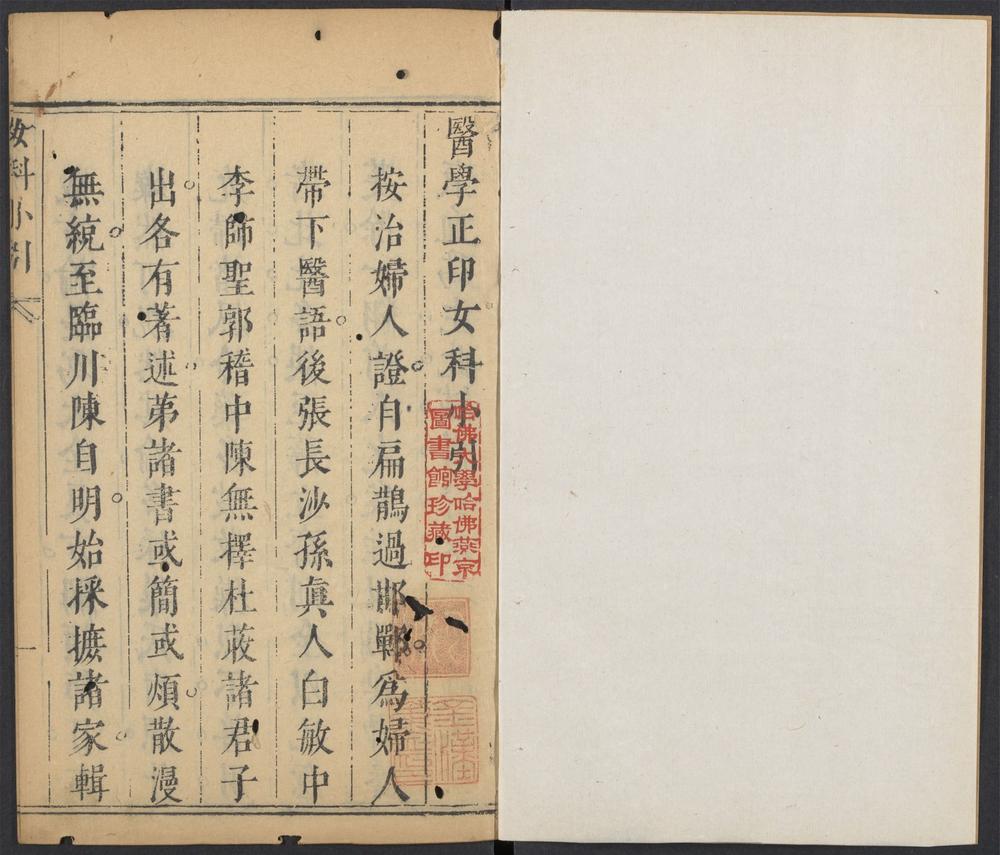 醫學正印女科小引
按治婦人證自扁鵲過邯鄲爲婦人
帶下醫語後張長沙孫真人白敏中
李師聖郭稽中陳無擇杜荍諸君子
出各有著述第諸書或簡或煩散漫
無統至臨川陳自明始採摭諸家輯
女科小引
哈佛大學哈佛燕京
圖書館珍藏印